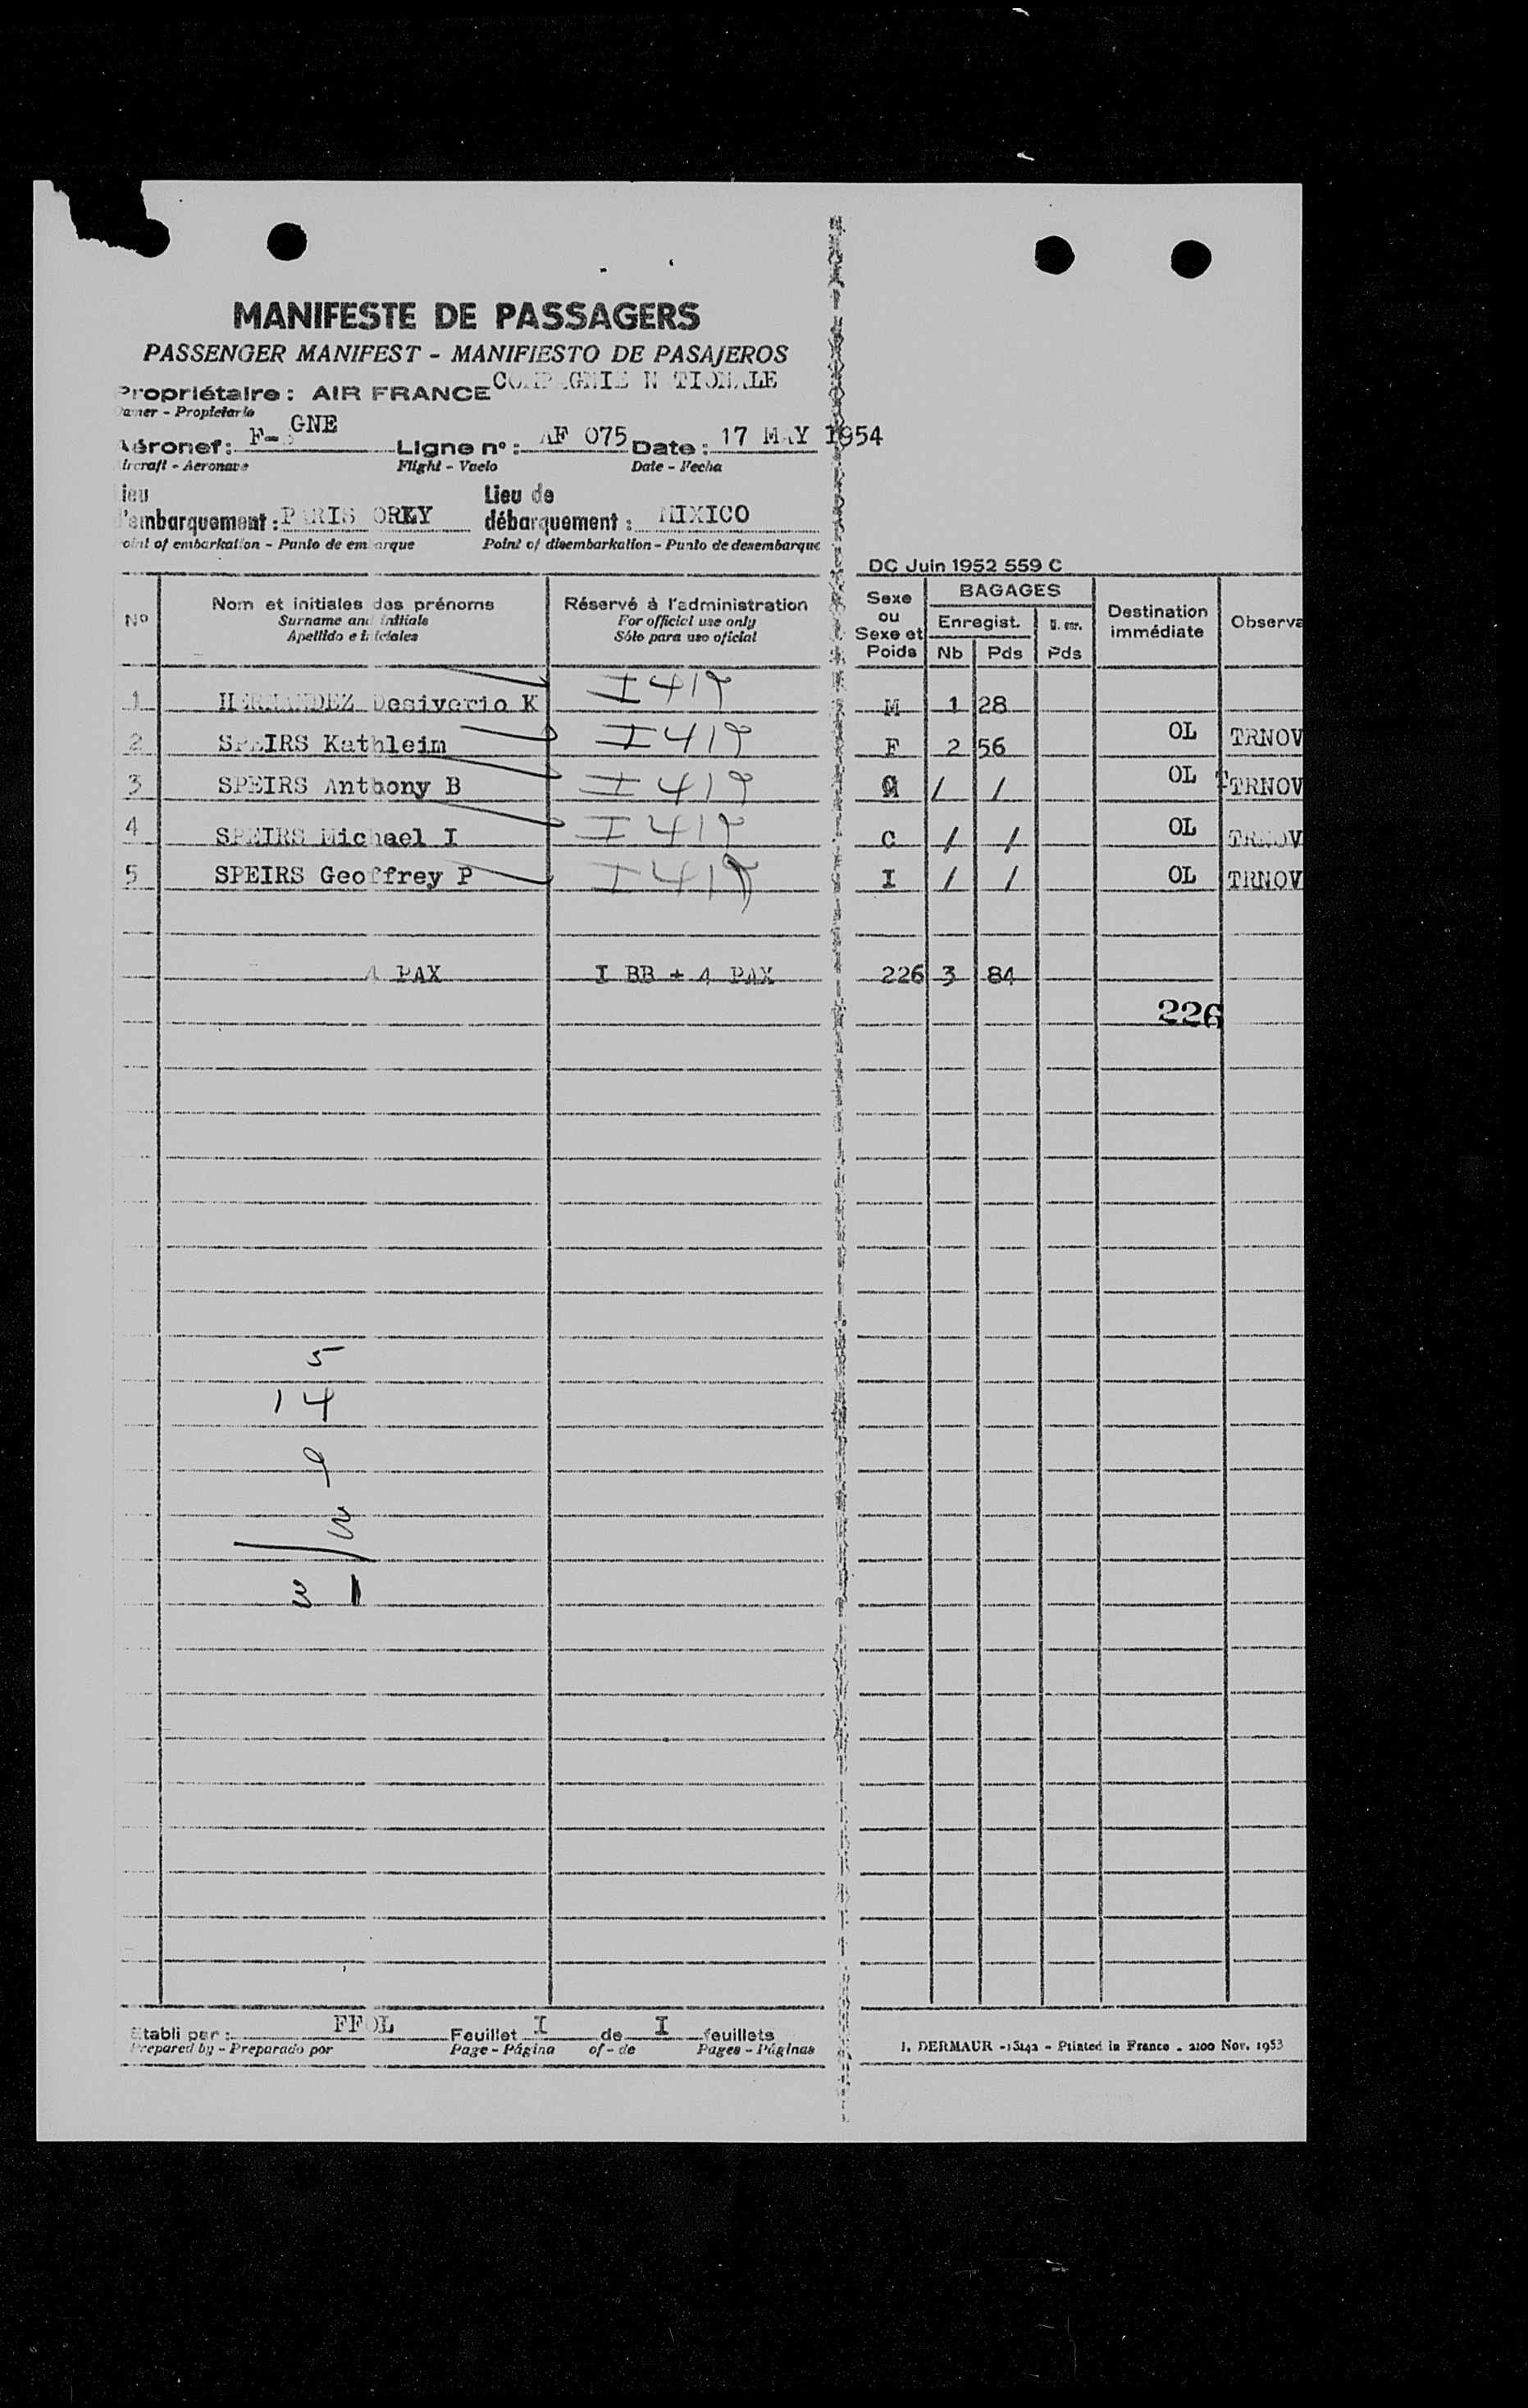 MANIFESTE DE PASSAGERS
PASSENGER MANIFEST - MANIFIESTO DE PASAJEROS
Propriétaire : AIR FRANCE COMPAGNIE N TIONALE
Owner - Propietario
Aéronef : F- GNE Ligne n° : AF 075 Date : 17 MAY 1954
Aircraft - Aeronave Flight - Vuelo Date - Fecha
Lieu d'embarquement : PARIS ORLY Lieu de débarquement : MIXICO
Point of embarkation - Punto de embarque Point of disembarkation - Punto de desembarque
DC Juin 1952 559 C
N° Nom et initiales des prénoms Réservé à l'administration Sexe ou Sexe et Poids BAGAGES Destination immédiate Observa
Surname and initials For official use only Enregist. N. enr.
Apellido e iniciales Sólo para uso oficial Nb Pds Pds
1 HERNANDEZ Desiverio K I 419 M 1 28
2 SPEIRS Kathleim I 419 F 2 56 OL TRNOV
3 SPEIRS Anthony B I 419 / / OL TRNOV
4 SPEIRS Michael I I 419 C / / OL TRNOV
5 SPEIRS Geoffrey P I 419 I / / OL TRNOV
4 PAX I BB + 4 PAX 226 3 84
226
5
14
Etabli par : FFOL Feuillet I de I feuillets
Prepared by - Preparado por Page - Página of - de Pages - Páginas
DERMAUR - Printed in France - 2100 Nov. 1953